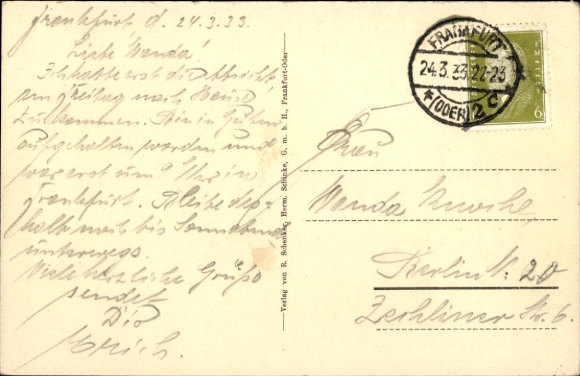 Frankfurt d. 24.3.33.
Liebe Wanda!
Ich hatte erst die Absicht
am Freitag nach Hause
zu kommen. Bin in Guben
aufgehalten worden und
war erst um Uhr in
Frankfurt. Bleibe des-
halb noch bis Sonnabend
unterwegs.
Viele herzliche Grüße
sendet
Dir
Erich.
Verlag von R. Schenker, Herm. Schinke, G. m. b. H., Frankfurt-Oder
FRANKFURT
24.3.33.22-23
* (ODER) 2 c *
6
Frau
Wanda
Berlin N. 20
Zechliner Str. 6.